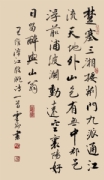 楚塞三湘接荊門九派通江
流天地外山色有無中郡邑
浮前浦波瀾動遠空襄陽好
風日留醉與山翁
王維漢江臨眺詩一首